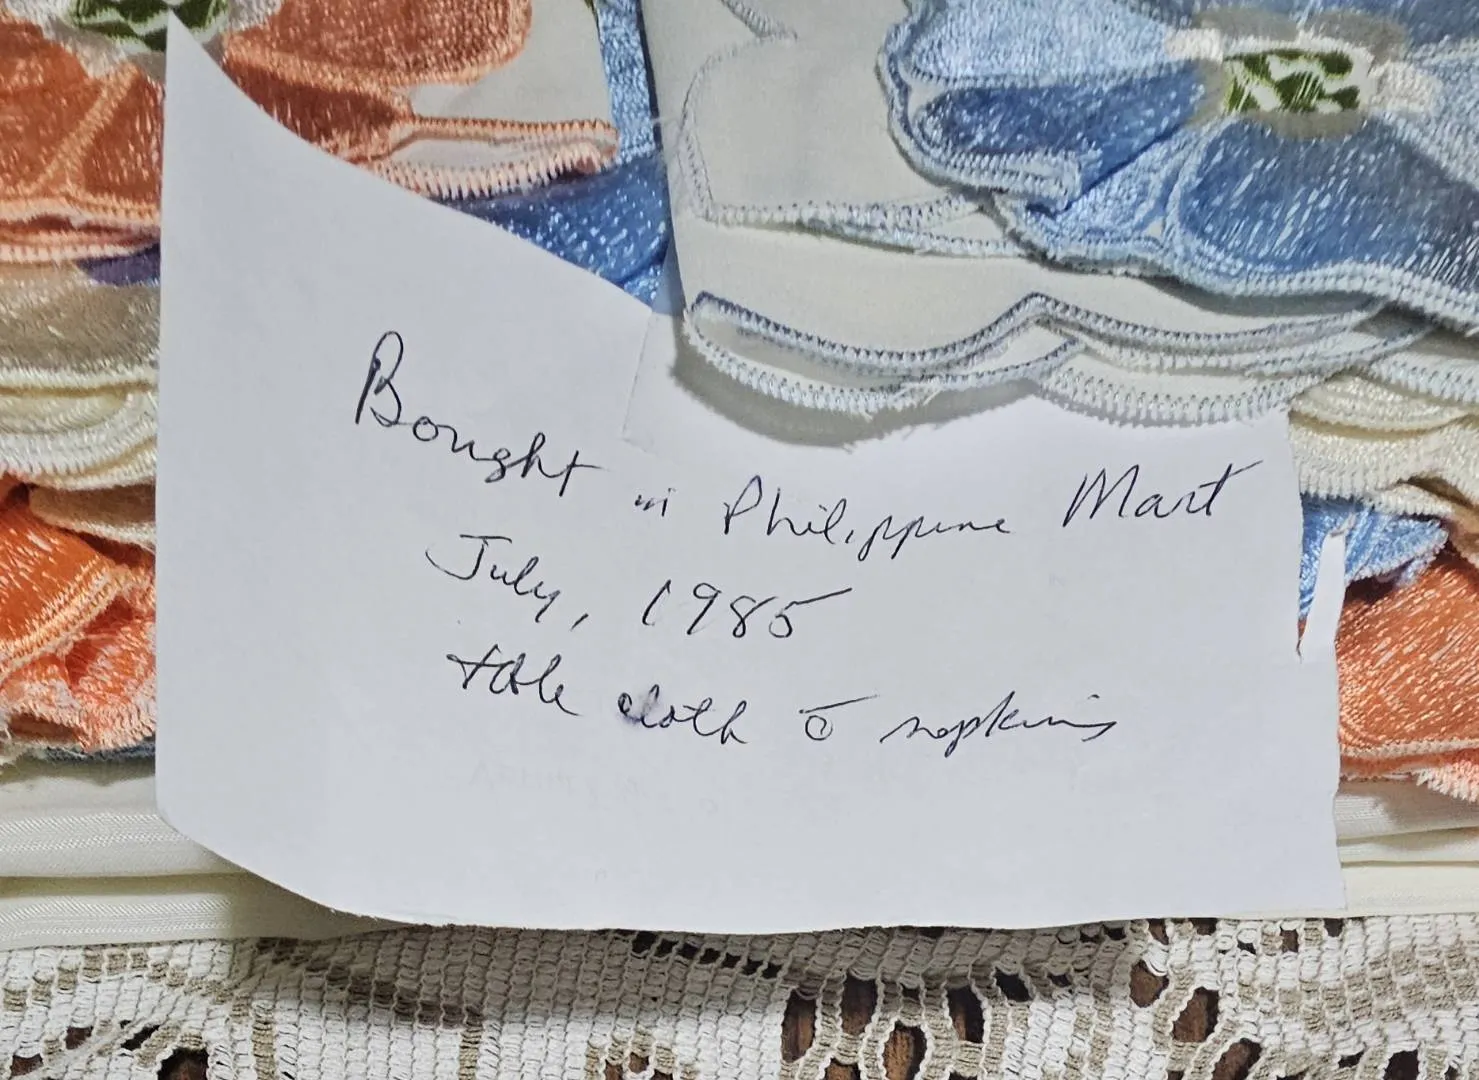 Bought in Philippine Mart
July, 1985
table cloth c̄ napkins